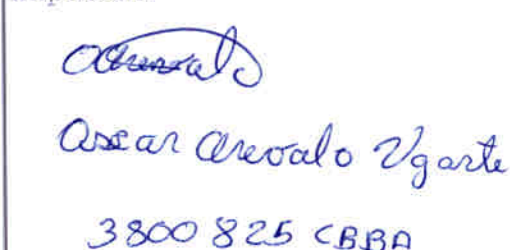 Oscar Arevalo Ugarte
3800825 CBBA